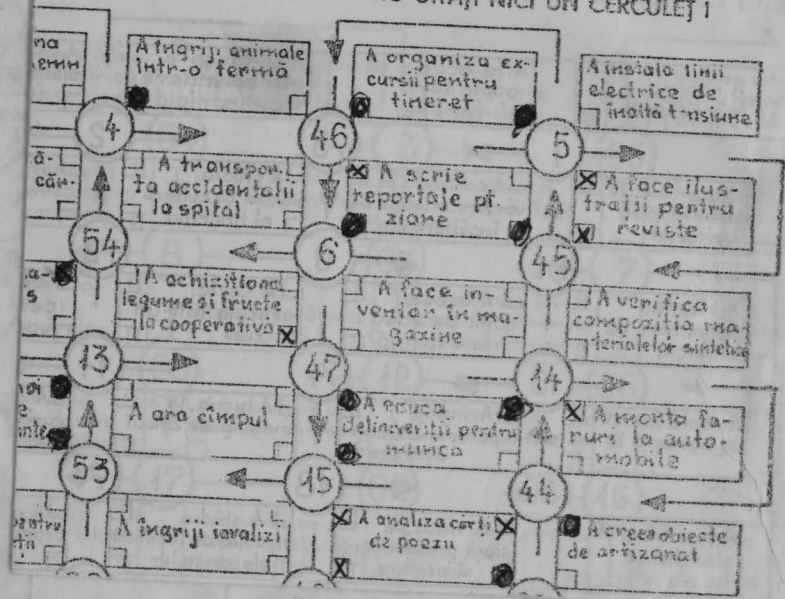 UITAȚI NICI UN CERCULEȚ !
A îngriji animale
într-o fermă
A organiza ex-
cursii pentru
tineret
A instala linii
electrice de
înaltă tensiune
4
46
5
A transpor-
ta accidentații
la spital
A scrie
reportaje pt.
ziare
A face ilus-
trații pentru
reviste
54
6
45
A achiziționa
legume și fructe
la cooperativă
A face in-
ventar în ma-
gazine
A verifica
compoziția ma-
terialelor sintetice
13
47
14
A ara cîmpul
A educa
delincvenții pentru
muncă
A monta fa-
ruri la auto-
mobile
53
15
44
A îngriji invalizi
A analiza cărți
de poezii
A crea obiecte
de artizanat